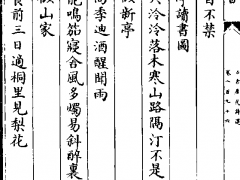 自不禁
讀書圖
泠泠落木寒山路隔汀不是
新亭
高季迪酒醒聞雨
能鳴篛寢舍風多燭易斜醉裏
山家
食前三日過桐里見梨花